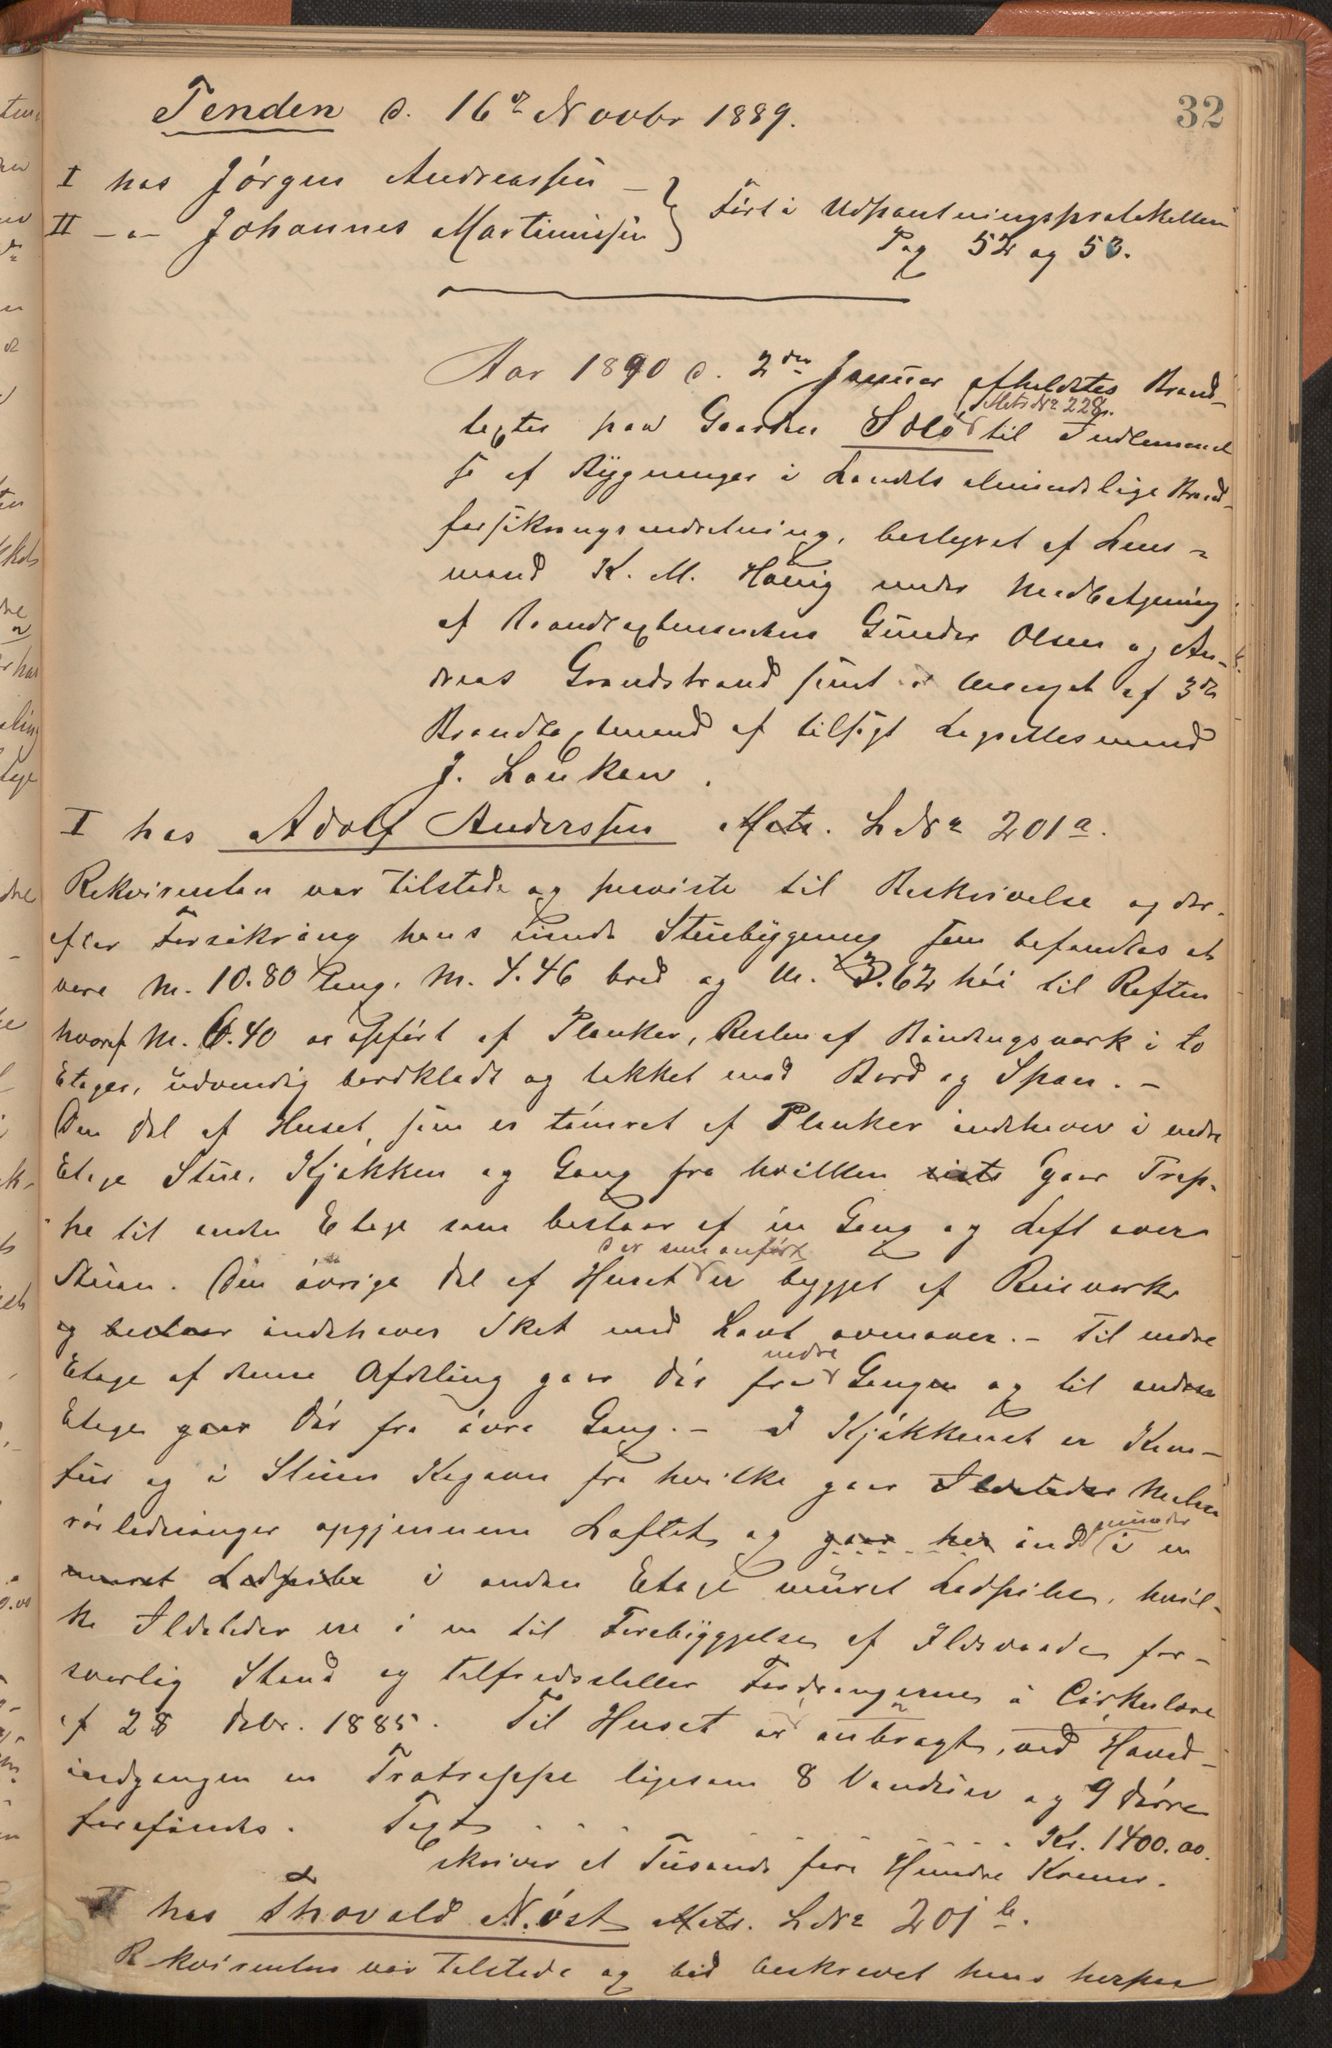 32
Tenden d. 16de Novbr 1889.
I hos Jörgen Andreassen –
II –"– Johannes Martinussen } Fört i Udpantningsprotokollen
Pag 52 og 53.
Aar 1890 d. 2den Januar afholdtes Brand-
taxter paa Gaarden Solö Mats Nr 228. til Indlemmel
se af Bygninger i Landets almindelige Brand-
forsikringsindretning, bestyret af Lens-
mand K. M. Hauig under Medbetjening
af Brandtaxtmændene Gunder Olsen og An-
dreas Grandstrand samt i Mangel af 3de
Brandtaxtmand af tilsagt Lagrettesmand
J. Lauken.
I hos Adolf Anderssen Matr. L Nr 201a.
Rekvirenten var tilstede og paaviste til Beskrivelse og der-
efter Forsikring hans Stuebygning som befandtes at
være M. 10.80 lang, M. 4.46 bred og M. 3.62 höi til Raften
hvoraf M. 6.40 er opfört af Planker, Resten af Bindingsværk i to
Etager, udvendig bordklædt og tækket med Bord og Spon. –
Den Del af Huset, som er tömret af Planker indehaver i nedre
Etage Stue, Kjökken og Gang fra hvilken sidste gaar Trap-
pe til anden Etage som bestaar af en Gang og Loft over
Stuen. Den övrige Del af Huset der som anfört er bygget af Reisværk
og bestaar indehaver Sket med Lovt ovenover. – Til nedre
Etage af denne Afdeling gaar Dör fra nedre Gangen og til anden
Etage gaar Dör fra övre Gang. – I Kjökkenet er Kom-
fur og i Stuen Kogeovn fra hvilke gaar Ildsteder Malm
rörledninger opgjennem Loftet og gaar her ind i en
muret Ledpibe i anden Etage muret Ledpibe, hvil-
ke Ildsteder ere i en til Forebyggelse af Ildsvaade for-
svarlig Stand og tilfredsstiller Fordringerne i Cirkulære
af 28 Debr. 1885. Til Huset er anbragt, ved Hoved-
indgangen en Trætrappe ligesom 8 Vinduer og 9 Dörre
forefindes. Taxt . . . . . . . . . Kr. 1400.00.
skriver et Tusende fire Hundre Kroner.
II hos Thovald Nöst Matr. L Nr 201b.
Rekvirenten var tilstede og bad beskrevet hans herpaa